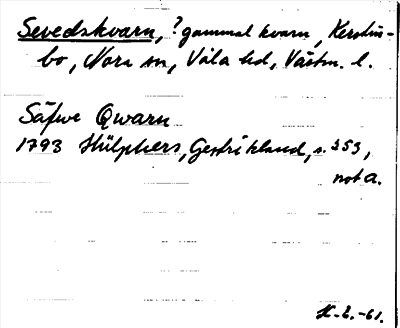 Sevedskvarn, ? gammal kvarn, Kerstins-
bo, Nora sn, Våla hd, Västm. l.
Säfwe Qwarn
1793 Hülphers, Gestrikland, s. 353,
not a.